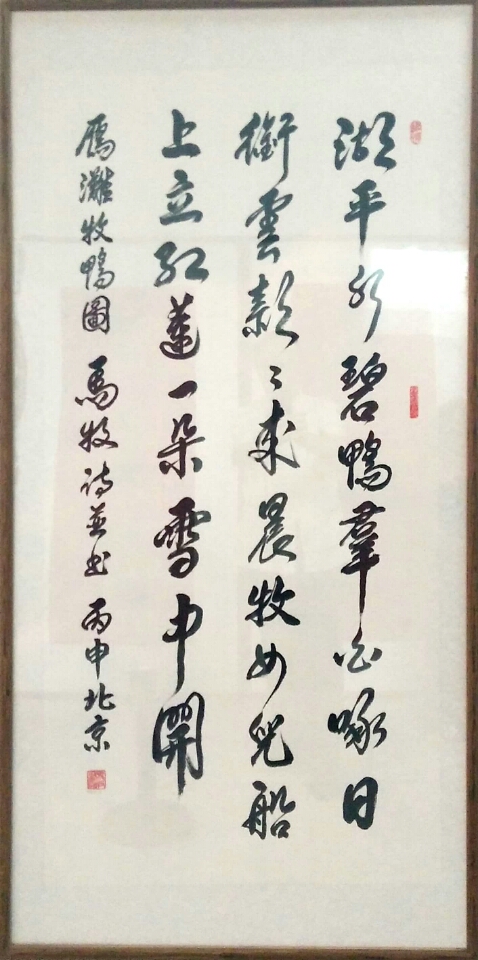 湖平水碧鴨羣白啄日
銜雲款款来晨牧女兒船
上立紅蓮一朵雪中開
鴈灘牧鴨圖 馬牧詩並书 丙申北京